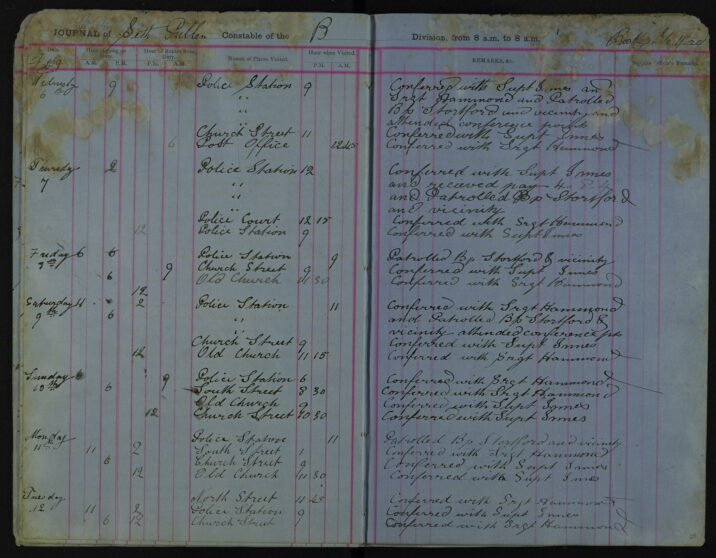 JOURNAL of Seth Pullen Constable of the B Division, from 8 a.m. to 8 a.m.
Date. Hour of Going on Duty. Hour of Return from Duty. Names of Places Visited. Hour when Visited. REMARKS, &c.
A.M. P.M. P.M. A.M. P.M. A.M.
9 Police Station 9 Conferred with Supt Innes and
6 " Srgt Hammond and Patrolled
" Bp Stortford and vicinity and
attended conference points
Church Street 11 Conferred with Supt Innes
6 Post Office 12 45 Conferred with Srgt Hammond
Thursday 2 Police Station 12 Conferred with Supt Innes
7 " and received pay
" and Patrolled Bp Stortford
and vicinity
Police Court 12 15 Conferred with Srgt Hammond
12 Police Station 9 Conferred with Supt Innes
Friday 6 6 Police Station 9 Patrolled Bp Stortford & vicinity
9 Church Street 9 Conferred with Supt Innes
6 Old Church 11 30 Conferred with Srgt Hammond
12
Saturday 11 2 Police Station 11 Conferred with Srgt Hammond
9th 6 " and Patrolled Bp Stortford &
" vicinity attended conference pts
Church Street 9 Conferred with Supt Innes
12 Old Church 11 15 Conferred with Srgt Hammond
Sunday 6 9 Police Station 6 Conferred with Srgt Hammond
10th 6 South Street 8 30 Conferred with Srgt Hammond
Old Church 9 Conferred with Supt Innes
12 Church Street 10 30 Conferred with Supt Innes
Monday Police Station 11 Patrolled Bp Stortford and vicinity
11 11 2 South Street 1 Conferred with Srgt Hammond
6 Church Street 9 Conferred with Supt Innes
12 Old Church 11 30 Conferred with Supt Innes
Tuesday North Street 11 45 Conferred with Srgt Hammond
12 11 2 Police Station 9 Conferred with Supt Innes
6 12 Church Street Conferred with Srgt Hammond